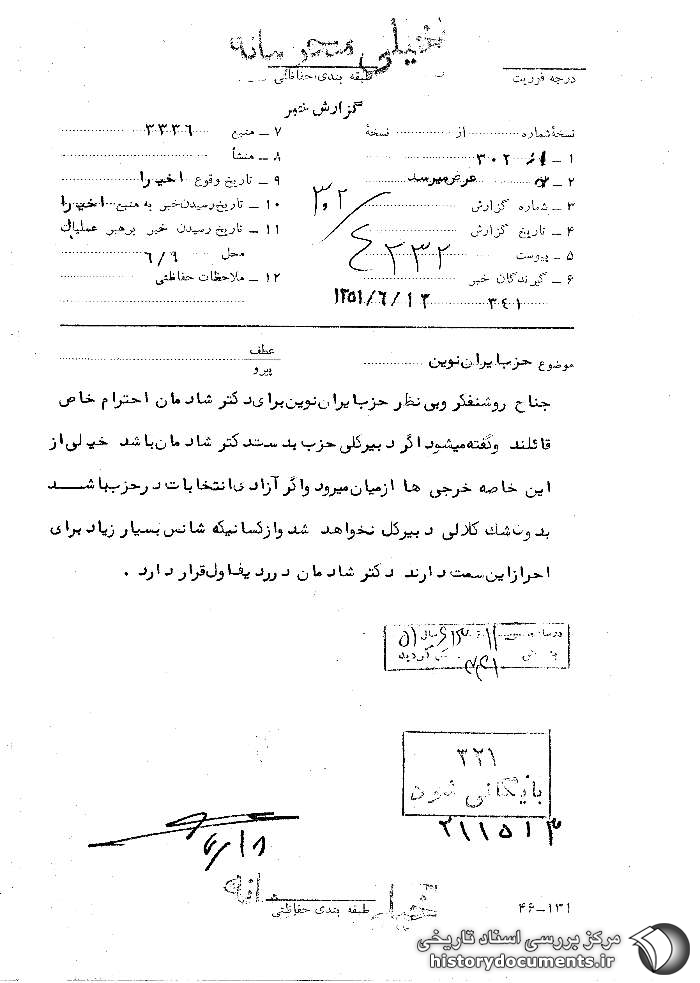 خیلی محرمانه
درجه فوریت
طبقه بندی حفاظتی
گزارش خبر
نسخهٔ شماره از نسخهٔ
۷ ــ منبع ۳۳۳۶
۱ ــ از ۳۰۲
۸ ــ منشأ
۲ ــ عرض میرسد
۹ ــ تاریخ وقوع اخیرا
۳ ــ شماره گزارش
۳۰۲
۱۰ ــ تاریخ رسیدن خبر به منبع اخیرا
۴ ــ تاریخ گزارش
۱۱ ــ تاریخ رسیدن خبر برهبر عملیات
۵ ــ پیوست
۴۲۳۲
محل ۶/۹
۶ ــ گیرندگان خبر
۱۲ ــ ملاحظات حفاظتی
۳۴۱
۱۳۵۱/۶/۱۲
موضوع حزب ایران نوین
عطف
پیرو
جناح روشنفکر وبی نظر حزب ایران نوین برای دکتر شادمان احترام خاص
قائلند وگفته میشود اگر دبیرکلی حزب بدست دکتر شادمان باشد خیلی از
این خاصه خرجی ها ازمیان میرود واگر آزادی انتخابات در حزب باشــد
بدون شك کلالی دبیرکل نخواهد شد وازکسانیکه شانس بسیار زیاد برای
احراز این سمت دارند دکتر شادمان در ردیف اول قرار دارد .
۳۲۱
بایگانی شود
۲۱۱۵۱۳
۶/۱۸
طبقه بندی حفاظتی
۴۶-۱۳۱
مرکز بررسی اسناد تاریخی
historydocuments.ir